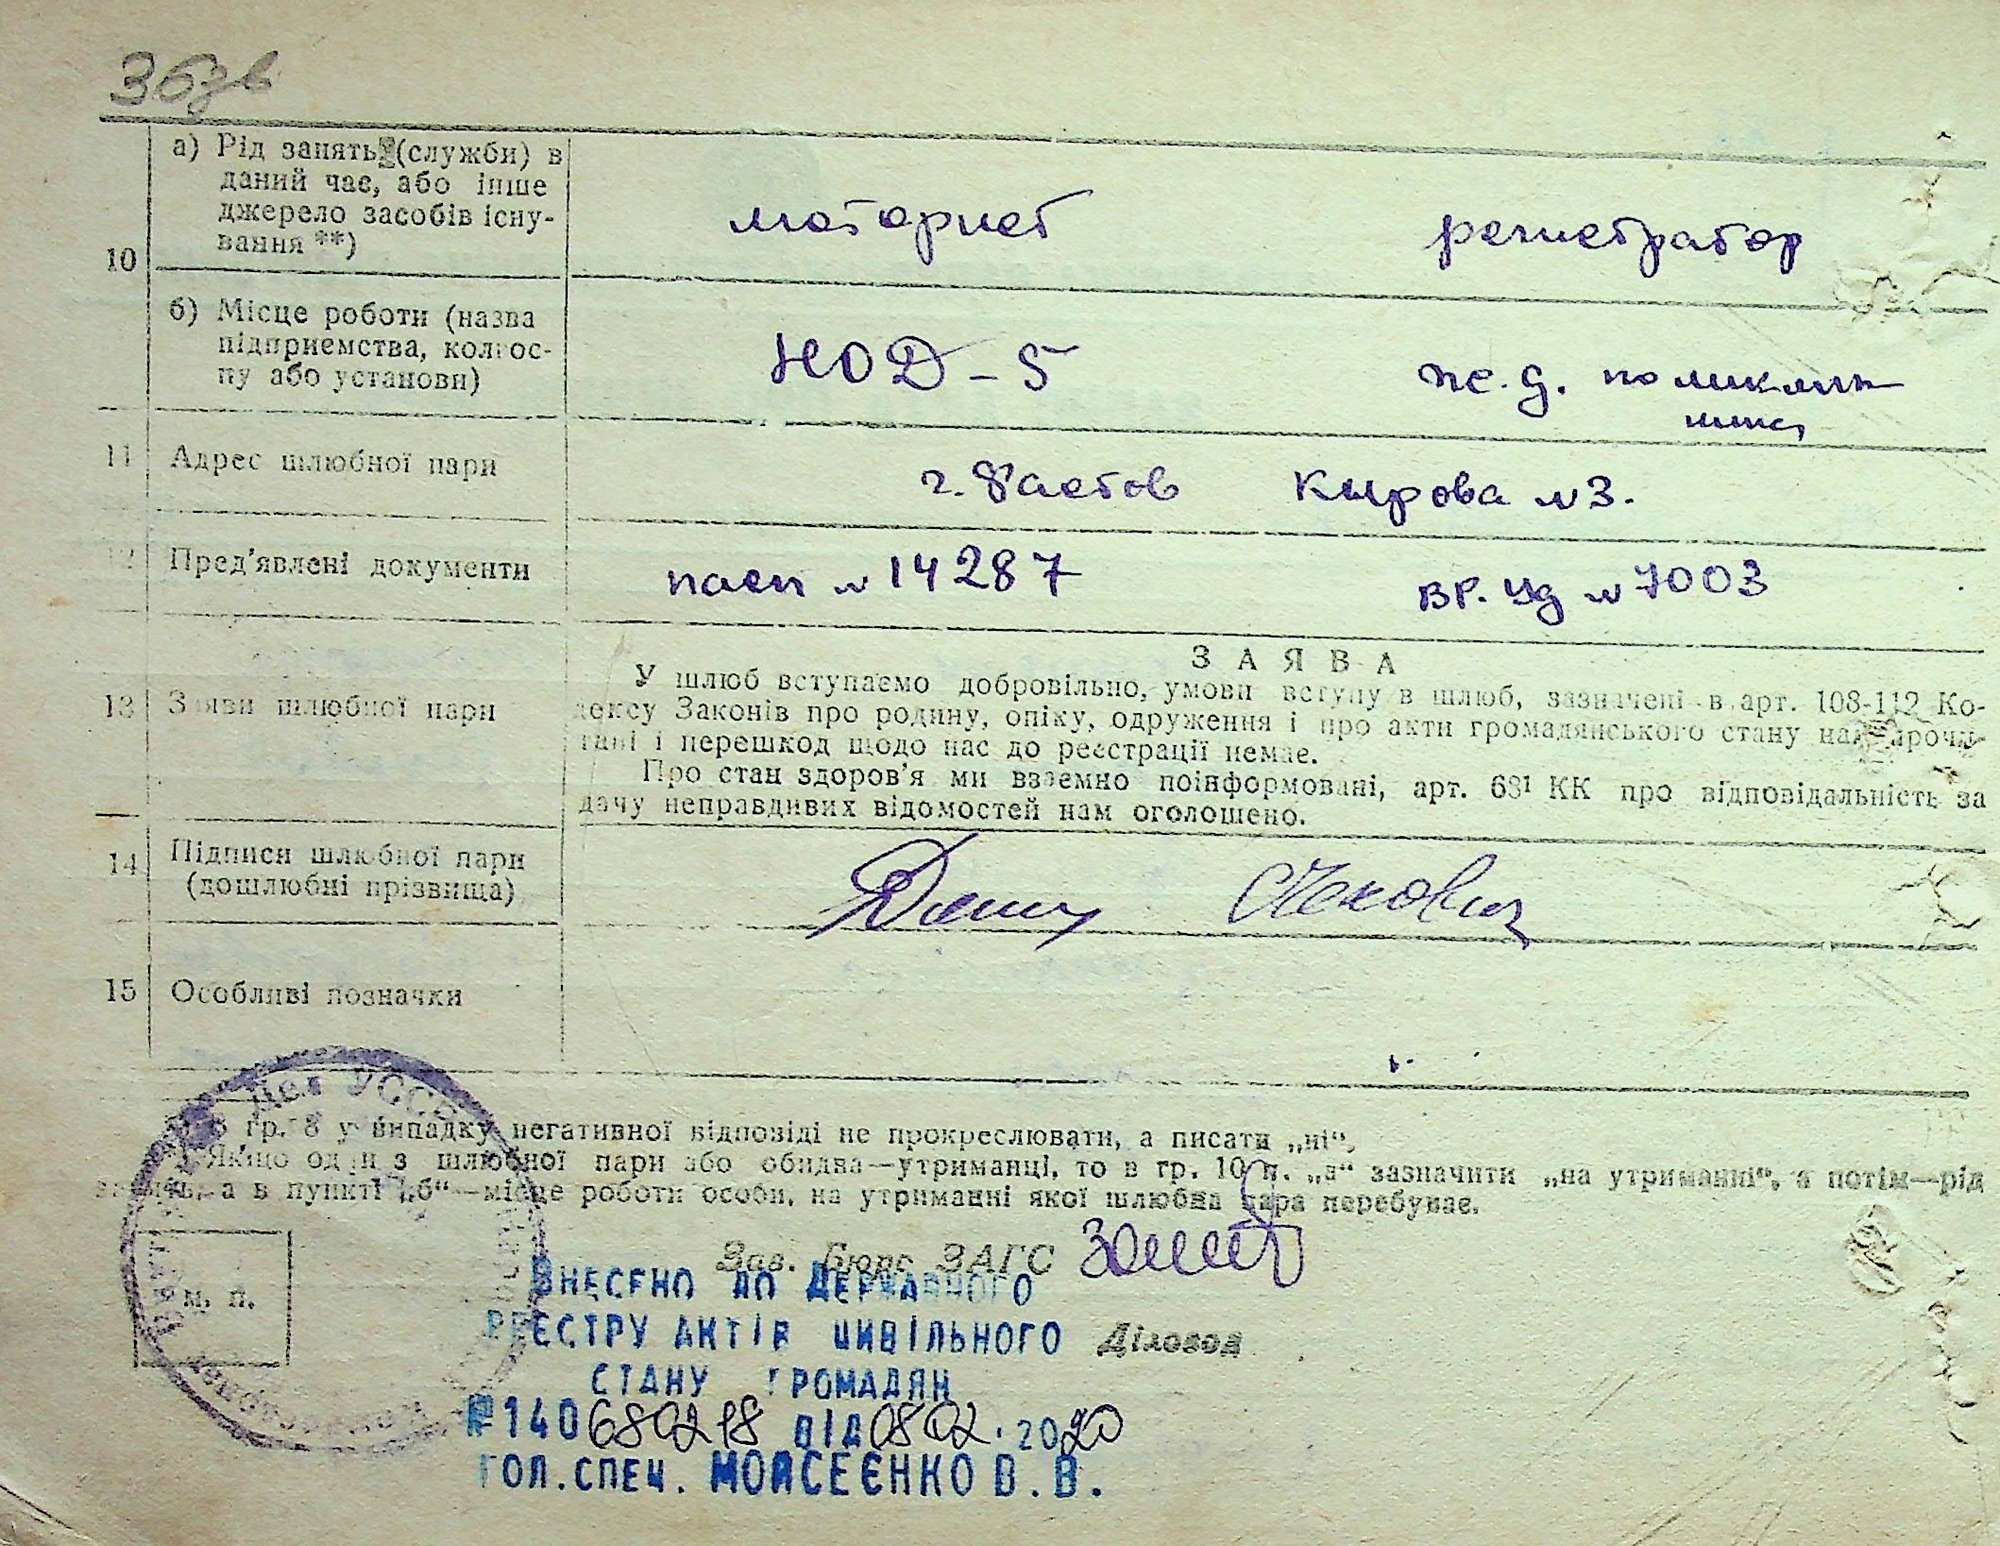 36зв
10
а) Рід занять (служби) в
даний час, або інше
джерело засобів існу-
вання **)
моторист
регистратор
б) Місце роботи (назва
підприємства, колгос-
пу або установи)
НОД-5
ж.д. поликли
ника
11 Адрес шлюбної пари
г. Фастов Кирова №3.
12 Пред'явлені документи
пасп №14287
вр. уд №7003
13 Заяви шлюбної пари
ЗАЯВА
У шлюб вступаємо добровільно, умови вступу в шлюб, зазначені в арт. 108-112 Ко-
дексу Законів про родину, опіку, одруження і про акти громадянського стану нам прочи-
тані і перешкод щодо нас до реєстрації немає.
Про стан здоров'я ми взаємно поінформовані, арт. 68¹ КК про відповідальність за
дачу неправдивих відомостей нам оголошено.
14 Підписи шлюбної пари
(дошлюбні прізвища)
15 Особливі позначки
гр. 8 у випадку негативної відповіді не прокреслювати, а писати „ні“.
Якщо один з шлюбної пари або обидва—утриманці, то в гр. 10 п. „а“ зазначити „на утриманні“, а потім—рід
занять, а в пункті „б“—місце роботи особи, на утриманні якої шлюбна пара перебуває.
Зав. Бюро ЗАГС
м. п.
Діловод
Внесено до Державного
реєстру актів цивільного
стану громадян
№140680218 від 08 02. 2020
гол.спец. Моисеєнко В.В.